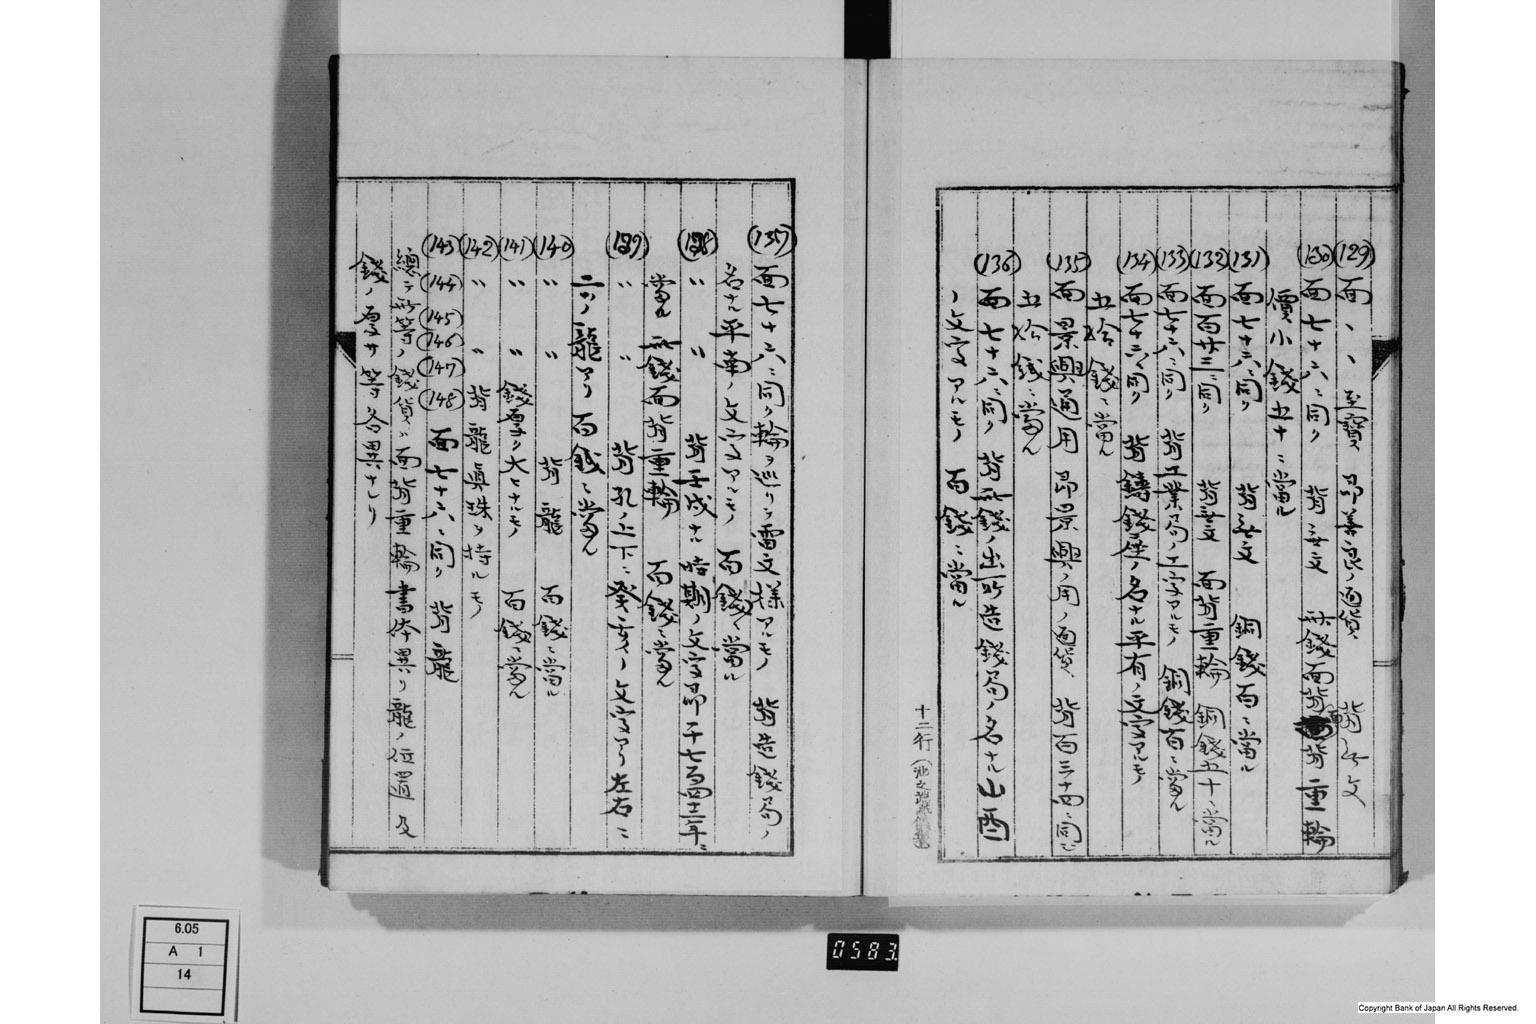 (129) 面、、至寶 即善良ノ通貨 背無文
(130) 面七十六ニ同ク 背無文 此錢面背背重輪
價小錢五十ニ當ル
(131) 面七十六ニ同ク 背無文 銅錢百ニ當ル
(132) 面百廿三ニ同ク 背無文 面背重輪 銅錢五十ニ當ル
(133) 面七十六ニ同ク 背工業局ノ工字アルモノ 銅錢百ニ當ル
(134) 面七十六ニ同ク 背鑄錢座ノ名ナル平有ノ文字アルモノ
五拾錢ニ當ル
(135) 面景興通用 即景興ノ用ノ通貨 背百三十四ニ同シ
五拾錢ニ當ル
(136) 面七十六ニ同ク 背此錢ノ出所造錢局ノ名ナル山酉
ノ文字アルモノ 百錢ニ當ル
十二行
(137) 面七十六ニ同ク輪ヲ巡リテ雷文樣アルモノ 背造錢局ノ
名ナル平南ノ文字アルモノ 百錢ニ當ル
(138) 〃 〃 背壬戌ナル時期ノ文字即千七百四十二年ニ
當ル 此錢面背重輪 百錢ニ當ル
(139) 〃 〃 背孔ノ上下ニ癸亥ノ文字アリ左右ニ
二ツノ龍アリ 百錢ニ當ル
(140) 〃 〃 背龍 百錢ニ當ル
(141) 〃 〃 錢厚ク大ナルモノ 百錢ニ當ル
(142) 〃 〃 背龍眞珠ヲ持ルモノ
(143) (144) (145) (146) (147) (148) 面七十六ニ同ク 背龍
總テ此等ノ錢貨ハ面背重輪書体異リ龍ノ位置及
錢ノ厚サ等各異ナレリ
6.05
A 1
14
0583.
Copyright Bank of Japan All Rights Reserved.